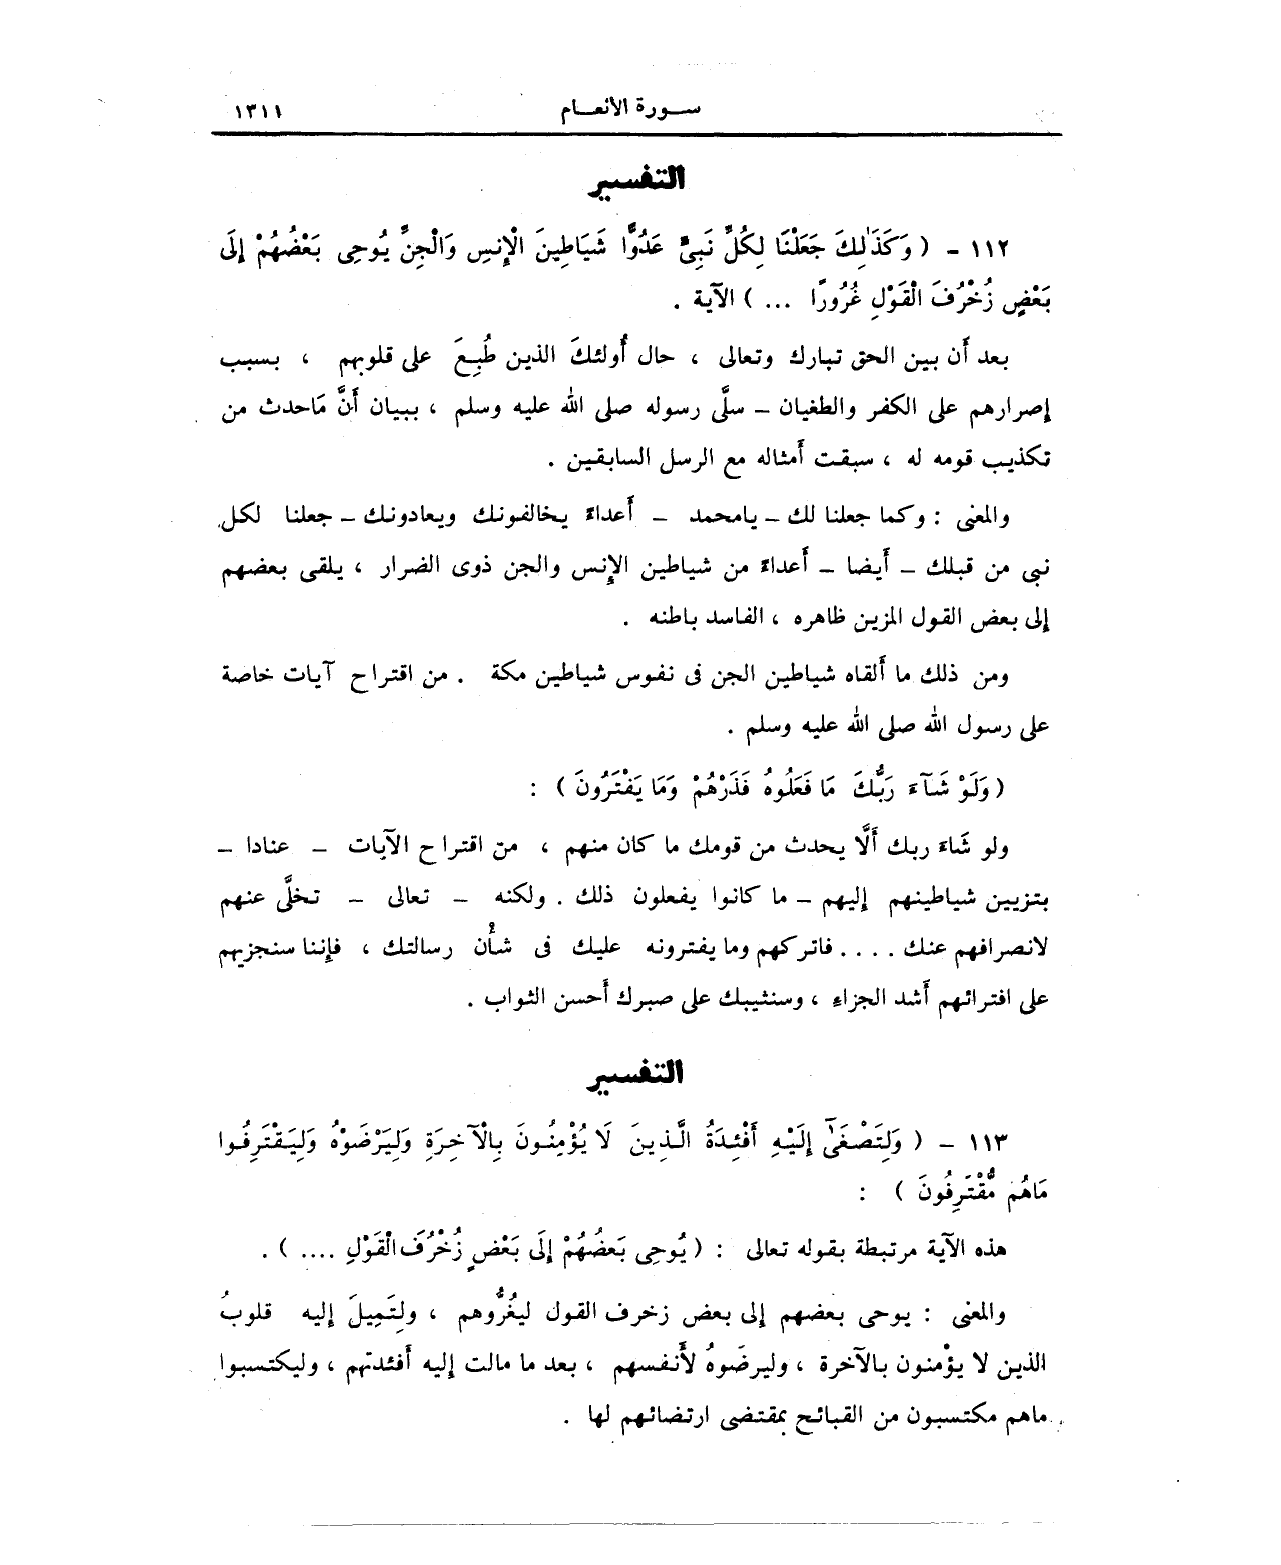 سورة الأنعام ١٣١١
التفسير
١١٢ - ( وَكَذَٰلِكَ جَعَلْنَا لِكُلِّ نَبِىٍّ عَدُوًّا شَيَاطِينَ الْإِنسِ وَالْجِنِّ يُوحِى بَعْضُهُمْ إِلَى
بَعْضٍ زُخْرُفَ الْقَوْلِ غُرُورًا ... ) الآية .
بعد أَن بين الحق تبارك وتعالى ، حال أُولئكَ الذين طُبِعَ على قلوبهم ، بسبب
إصرارهم على الكفر والطغيان - سلَّى رسوله صلى الله عليه وسلم ، ببيان أَنَّ مَاحدث من
تكذيب قومه له ، سبقت أَمثاله مع الرسل السابقين .
والمعنى : وكما جعلنا لك - يامحمد - أَعداءً يخالفونك ويعادونك - جعلنا لكل
نبى من قبلك - أَيضا - أَعداءً من شياطين الإِنس والجن ذوى الضرار ، يلقى بعضهم
إلى بعض القول المزين ظاهره ، الفاسد باطنه .
ومن ذلك ما أَلقاه شياطين الجن فى نفوس شياطين مكة . من اقتراح آيات خاصة
على رسول الله صلى الله عليه وسلم .
( وَلَوْ شَآءَ رَبُّكَ مَا فَعَلُوهُ فَذَرْهُمْ وَمَا يَفْتَرُونَ ) :
ولو شَاءَ ربك أَلَّا يحدث من قومك ما كان منهم ، من اقتراح الآيات - عنادا -
بتزيين شياطينهم إليهم - ما كانوا يفعلون ذلك . ولكنه - تعالى - تخلَّى عنهم
لانصرافهم عنك .... فاتركهم وما يفترونه عليك فى شأْن رسالتك ، فإننا سنجزيهم
على افترائهم أَشد الجزاءِ ، وسنثيبك على صبرك أَحسن الثواب .
التفسير
١١٣ - ( وَلِتَصْغَىٰٓ إِلَيْهِ أَفْئِدَةُ الَّذِينَ لَا يُؤْمِنُونَ بِالْآخِرَةِ وَلِيَرْضَوْهُ وَلِيَقْتَرِفُوا
مَاهُم مُّقْتَرِفُونَ ) :
هذه الآية مرتبطة بقوله تعالى : ( يُوحِى بَعضُهُمْ إِلَى بَعْضٍ زُخْرُفَ الْقَوْلِ .... ) .
والمعنى : يوحى بعضهم إلى بعض زخرف القول ليغُرُّوهم ، ولِتَمِيلَ إليه قلوبُ
الذين لا يؤْمنون بالآخرة ، وليرضَوهُ لأَنفسهم ، بعد ما مالت إليه أفئدتهم ، وليكتسبوا
ماهم مكتسبون من القبائح بمقتضى ارتضائهم لها .